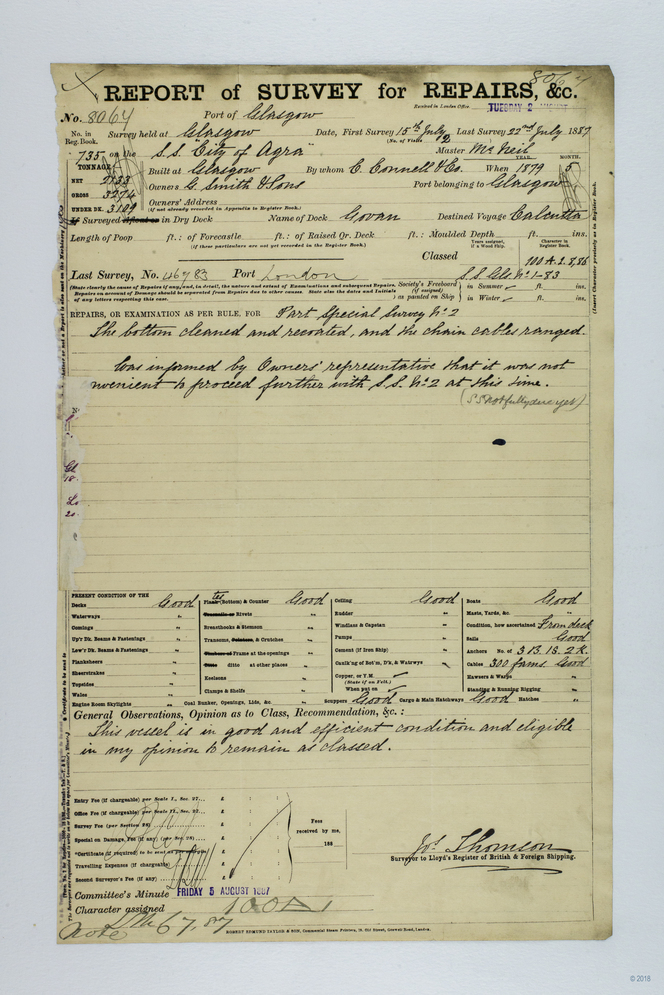 8064
REPORT of SURVEY for REPAIRS, &c.
Received in London Office, TUESDAY 2 AUGUST
No. 8064 Port of Glasgow
No. in Reg. Book. Survey held at Glasgow Date, First Survey 15th July Last Survey 22nd July 1887
(No. of Visits 2)
735 on the S.S. "City of Agra" Master McNeil
TONNAGE Built at Glasgow By whom C. Connell & Co. When 1879 5
YEAR. MONTH.
NET 2133
GROSS 3274 Owners G. Smith & Sons Port belonging to Glasgow
UNDER DK. 3109 Owners' Address
(if not already recorded in Appendix to Register Book.)
If Surveyed Afloat or in Dry Dock Name of Dock Govan Destined Voyage Calcutta
Length of Poop ft.: of Forecastle ft.: of Raised Qr. Deck ft.: Moulded Depth ft. ins.
(if these particulars are not yet recorded in the Register Book.)
Years assigned, if a Wood Ship. Character in Register Book.
Classed 100 A.1. 8,86
Last Survey, No. 46783 Port London S.S. Gls. No 1-83
(State clearly the cause of Repairs if any; and, in detail, the nature and extent of Examinations and subsequent Repairs.
Repairs on account of Damage should be separated from Repairs due to other causes. State also the dates and initials
of any letters respecting this case.
Society's Freeboard (if assigned) as painted on Ship in Summer ft. ins.
in Winter ft. ins.
REPAIRS, OR EXAMINATION AS PER RULE, FOR Part Special Survey No 2
The bottom cleaned and recoated, and the chain cables ranged.
Was informed by Owners' representative that it was not
nvenient to proceed further with S.S. No 2 at this time.
(SS not fully done yet)
PRESENT CONDITION OF THE
Decks Good
Waterways "
Comings "
Up'r Dk. Beams & Fastenings "
Low'r Dk. Beams & Fastenings "
Planksheers "
Sheerstrakes "
Topsides "
Wales "
Engine Room Skylights "
Plates (Bottom) & Counter Good
Treenails or Rivets "
Breasthooks & Stemson "
Transoms, Pointers, & Crutches "
Timbers or Frame at the openings "
Ditto ditto at other places "
Keelsons "
Clamps & Shelfs "
Coal Bunker, Openings, Lids, &c. "
Ceiling Good
Rudder "
Windlass & Capstan "
Pumps "
Cement (if Iron Ship) "
Caulk'ng of Bot'm, D'k, & Watrwys
Copper, or Y.M.
(State if on Felt.)
When put on
Scuppers Good Cargo & Main Hatchways Good Hatches "
Boats Good
Masts, Yards, &c. "
Condition, how ascertained From deck
Sails Good
Anchors No. of 3 B. 1S. 2K.
Cables 300 fams. Good
Hawsers & Warps "
Standing & Running Rigging "
General Observations, Opinion as to Class, Recommendation, &c.:
This vessel is in good and efficient condition and eligible
in my opinion to remain as classed.
Entry Fee (if chargeable) per Scale I., Sec. 27... £ : :
Office Fee (if chargeable) per Scale II., Sec. 27... £ : :
Survey Fee (per Section 28) £ : :
Special on Damage, Fee (if any) (per Sec. 28) £ : :
*Certificate (if required) to be sent as per £ : :
Travelling Expenses (if chargeable) £ : :
Second Surveyor's Fee (if any) £ : :
Fees received by me, 188
Jas. Thomson
Surveyor to Lloyd's Register of British & Foreign Shipping.
Committee's Minute FRIDAY 5 AUGUST 1887
Character assigned 100A1
Note
ROBERT EDMUND TAYLOR & SON, Commercial Steam Printers, 19, Old Street, Goswell Road, London.
(Insert Character precisely as in Register Book.
© 2018